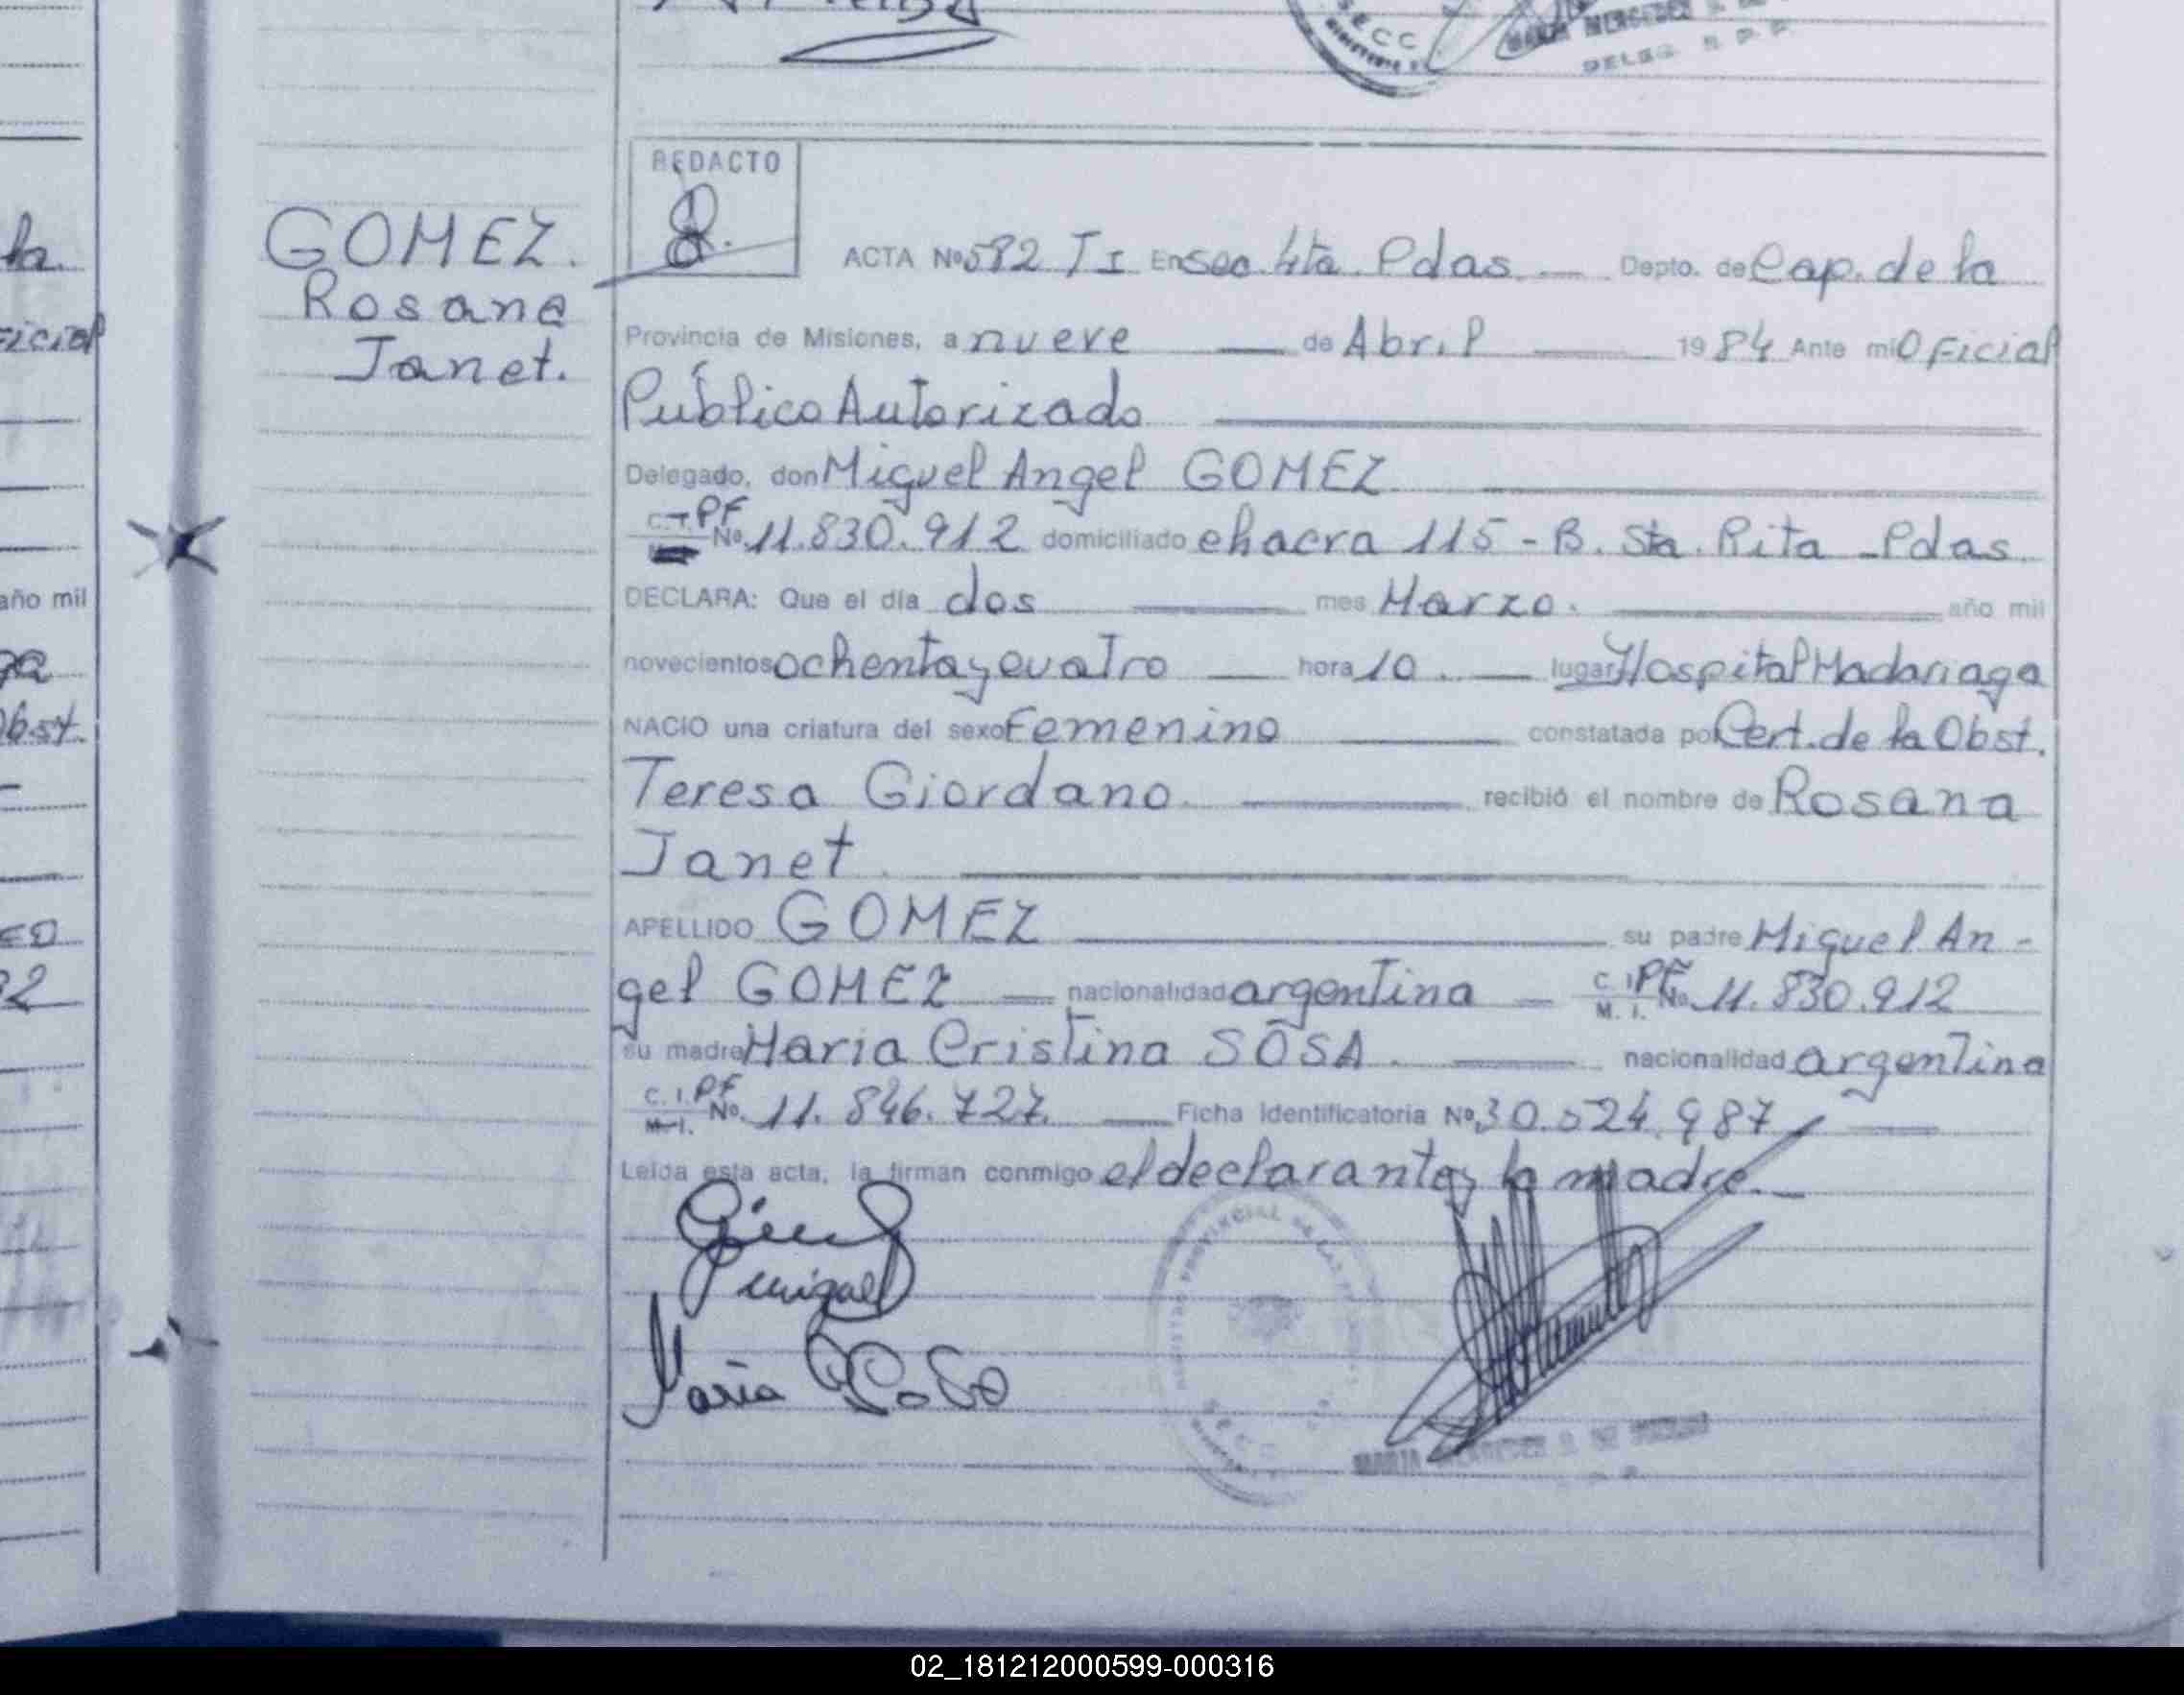 SECC
DELEG. R.P.P.
la.
Ficial
año mil
ga
Obst.
GOMEZ.
Rosana
Janet.
REDACTO
ACTA Nº 582 T I En Sec. 4ta. Pdas. Depto. de Cap. de la
Provincia de Misiones, a nueve de Abril 1984 Ante mi Oficial
Público Autorizado
Delegado, don Miguel Angel GOMEZ
C. I. PF Nº 11.830.912 domiciliado chacra 115 - B. Sta. Rita - Pdas.
DECLARA: Que el día dos mes Marzo. año mil
novecientos ochenta y cuatro hora 10. lugar Hospital Madariaga
NACIO una criatura del sexo Femenino constatada por Cert. de la Obst.
Teresa Giordano. recibió el nombre de Rosana
Janet.
APELLIDO GOMEZ su padre Miguel An-
gel GOMEZ nacionalidad argentina C. I. PF M. I. Nº 11.830.912
su madre Maria Cristina SOSA. nacionalidad argentina
C. I. PF M. I. Nº 11.846.727. Ficha Identificatoria Nº 30.524.987
Leída esta acta, la firman conmigo el declarante y la madre.
Miguel
Maria C SoSa
SECC
02_181212000599-000316